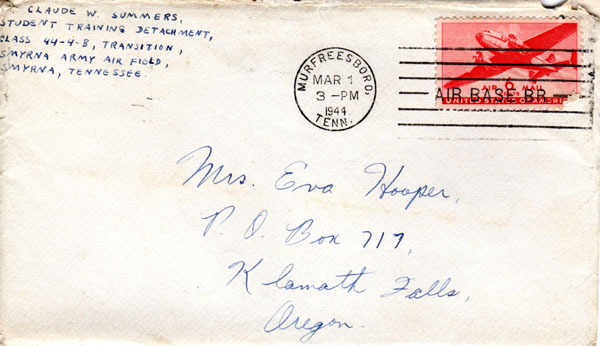 CLAUDE W. SUMMERS,
STUDENT TRAINING DETACHMENT,
CLASS 44-4-B, TRANSITION,
SMYRNA ARMY AIR FIELD,
SMYRNA, TENNESSEE
MURFREESBORO,
MAR 1
3-PM
1944
TENN.
AIR BASE BR.
6
AIR MAIL
UNITED STATES OF AMERI
Mrs. Eva Hooper,
P. O. Box 717,
Klamath Falls,
Oregon.